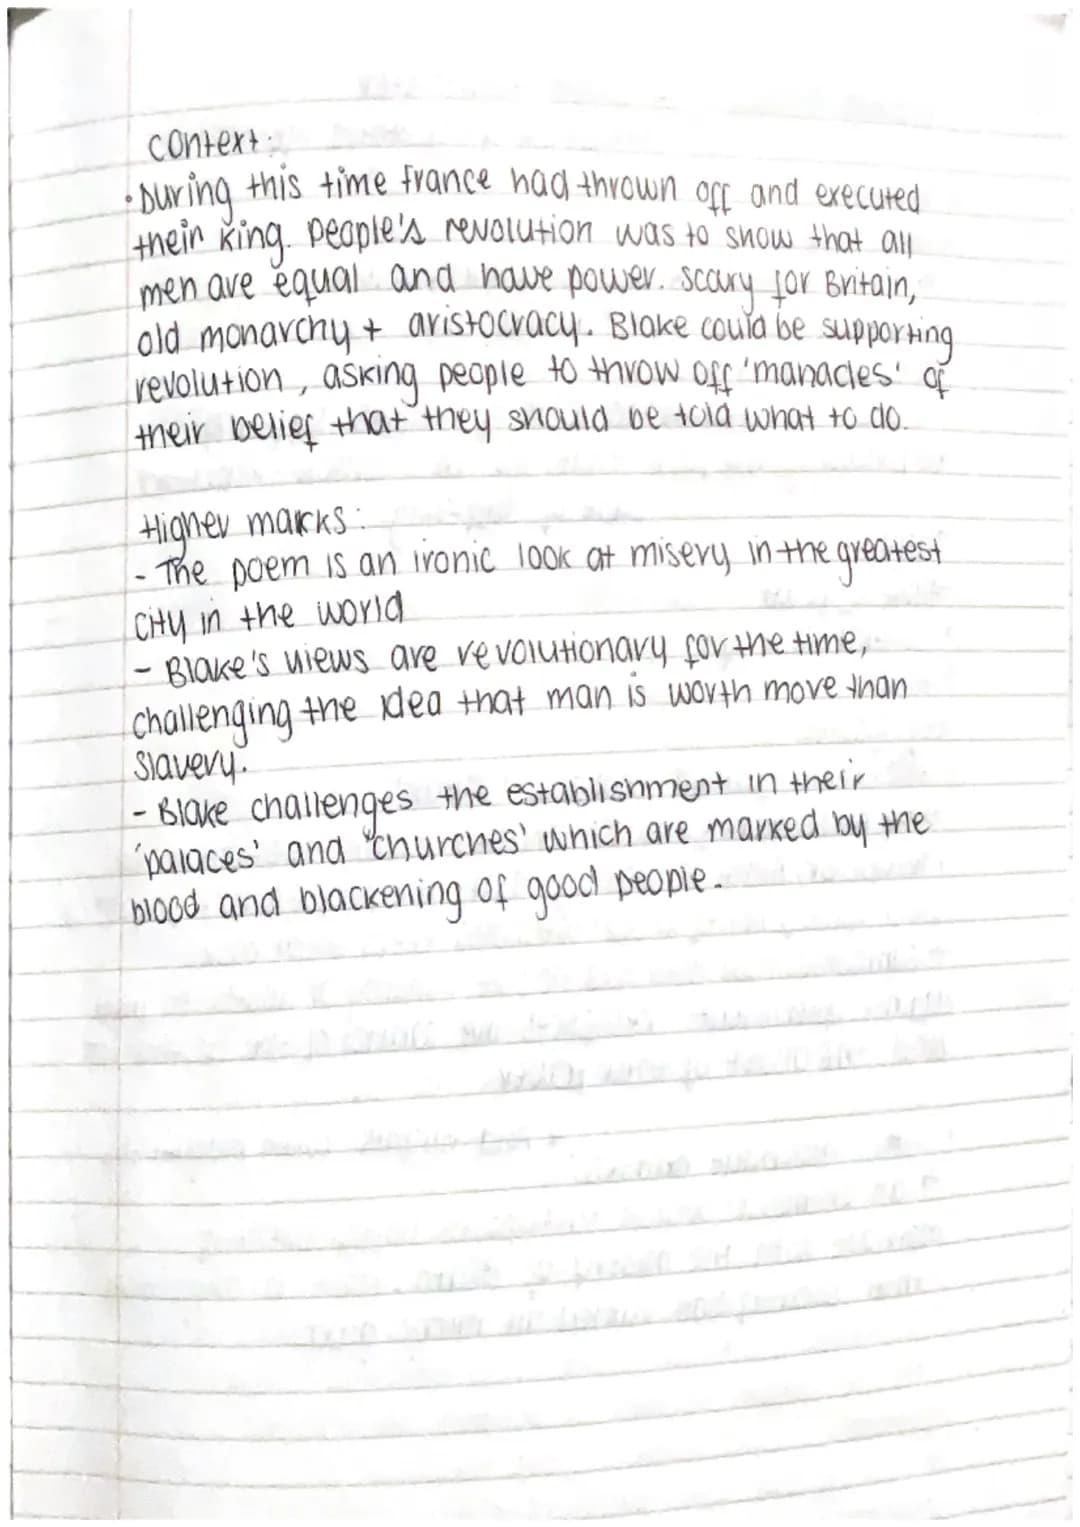 context:
• During this time france had thrown off and executed
their king. people's revolution was to show that all
men are equal and have power. scary for Britain,
old monarchy + aristocracy. Blake could be supporting
revolution, asking people to throw off 'manacles' of
their belief that they should be told what to do.
Higher marks:
- The poem is an ironic look at misery in the greatest
city in the world
- Blake's views are revolutionary for the time,
challenging the idea that man is worth more than
slavery.
- Blake challenges the establishment in their
'palaces' and "churches' which are marked by the
blood and blackening of good people.